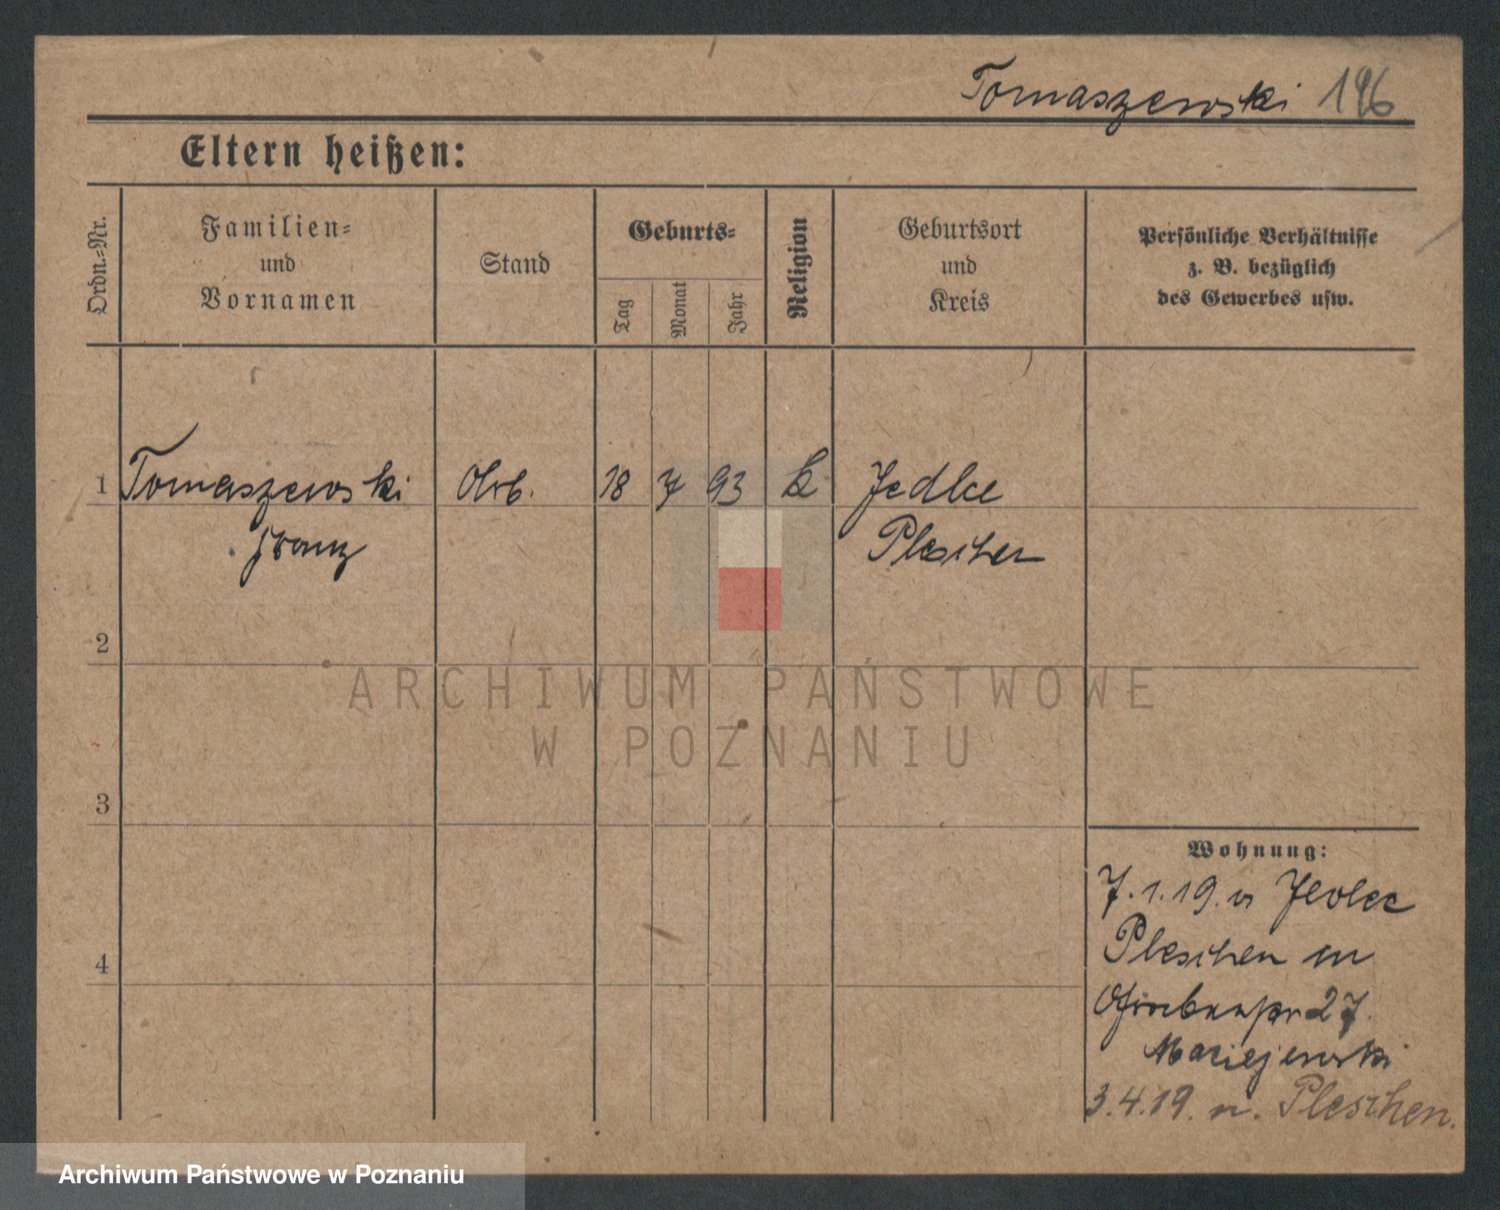 Tomaszewski 196
Eltern heißen:
Ordn.-Nr.
Familien-
und
Vornamen
Stand
Geburts-
Tag
Monat
Jahr
Religion
Geburtsort
und
Kreis
Persönliche Verhältnisse
z. B. bezüglich
des Gewerbes usw.
1 Tomaszewski Arb. 18 7 93 k Jedlec
Franz Pleschen
2
ARCHIWUM PAŃSTWOWE
W POZNANIU
3
Wohnung:
7.1.19. v Jedlec
Pleschen
4
27.
Maciejewski
3.4.19. n. Pleschen.
Archiwum Państwowe w Poznaniu